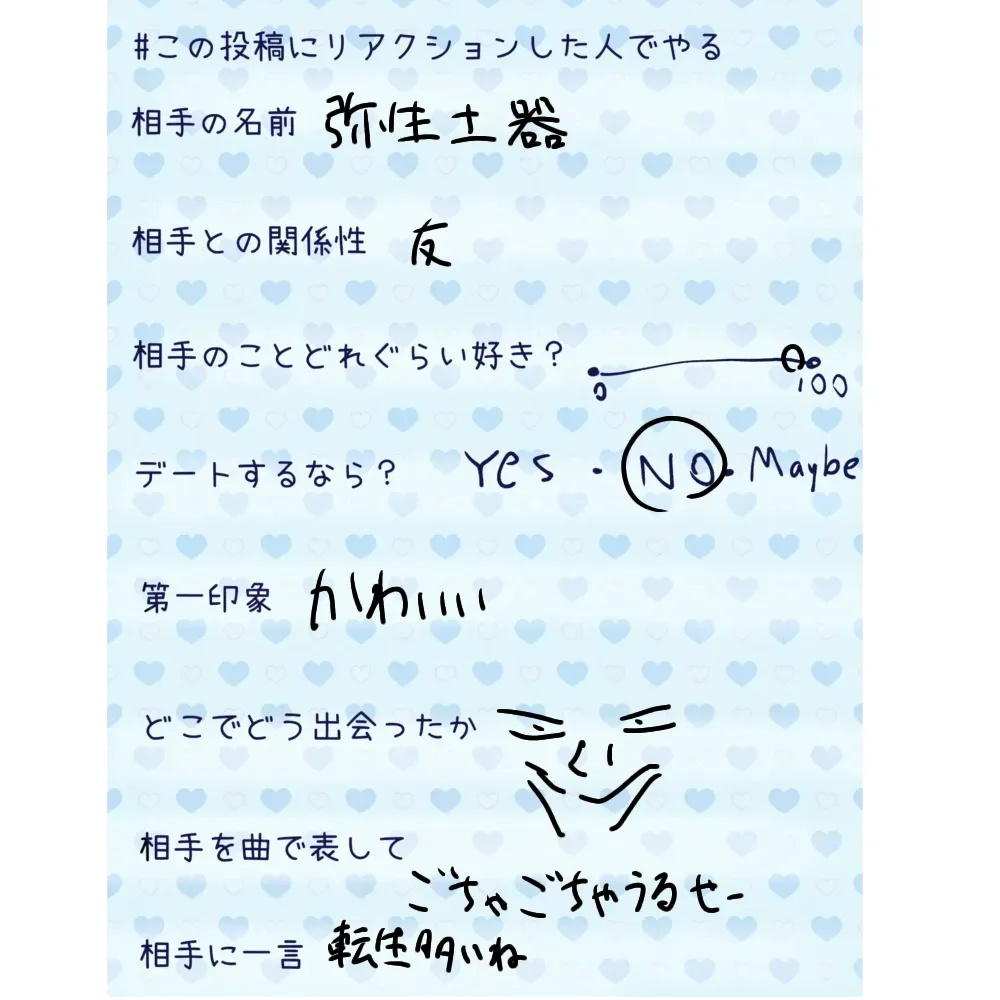 #この投稿にリアクションした人でやる
相手の名前 弥生土器
相手との関係性 友
相手のことどれぐらい好き？ 0 100
デートするなら？ Yes・NO・Maybe
第一印象 かわいいい
どこでどう出会ったか
相手を曲で表して
ごちゃごちゃうるせー
相手に一言 転生多いね